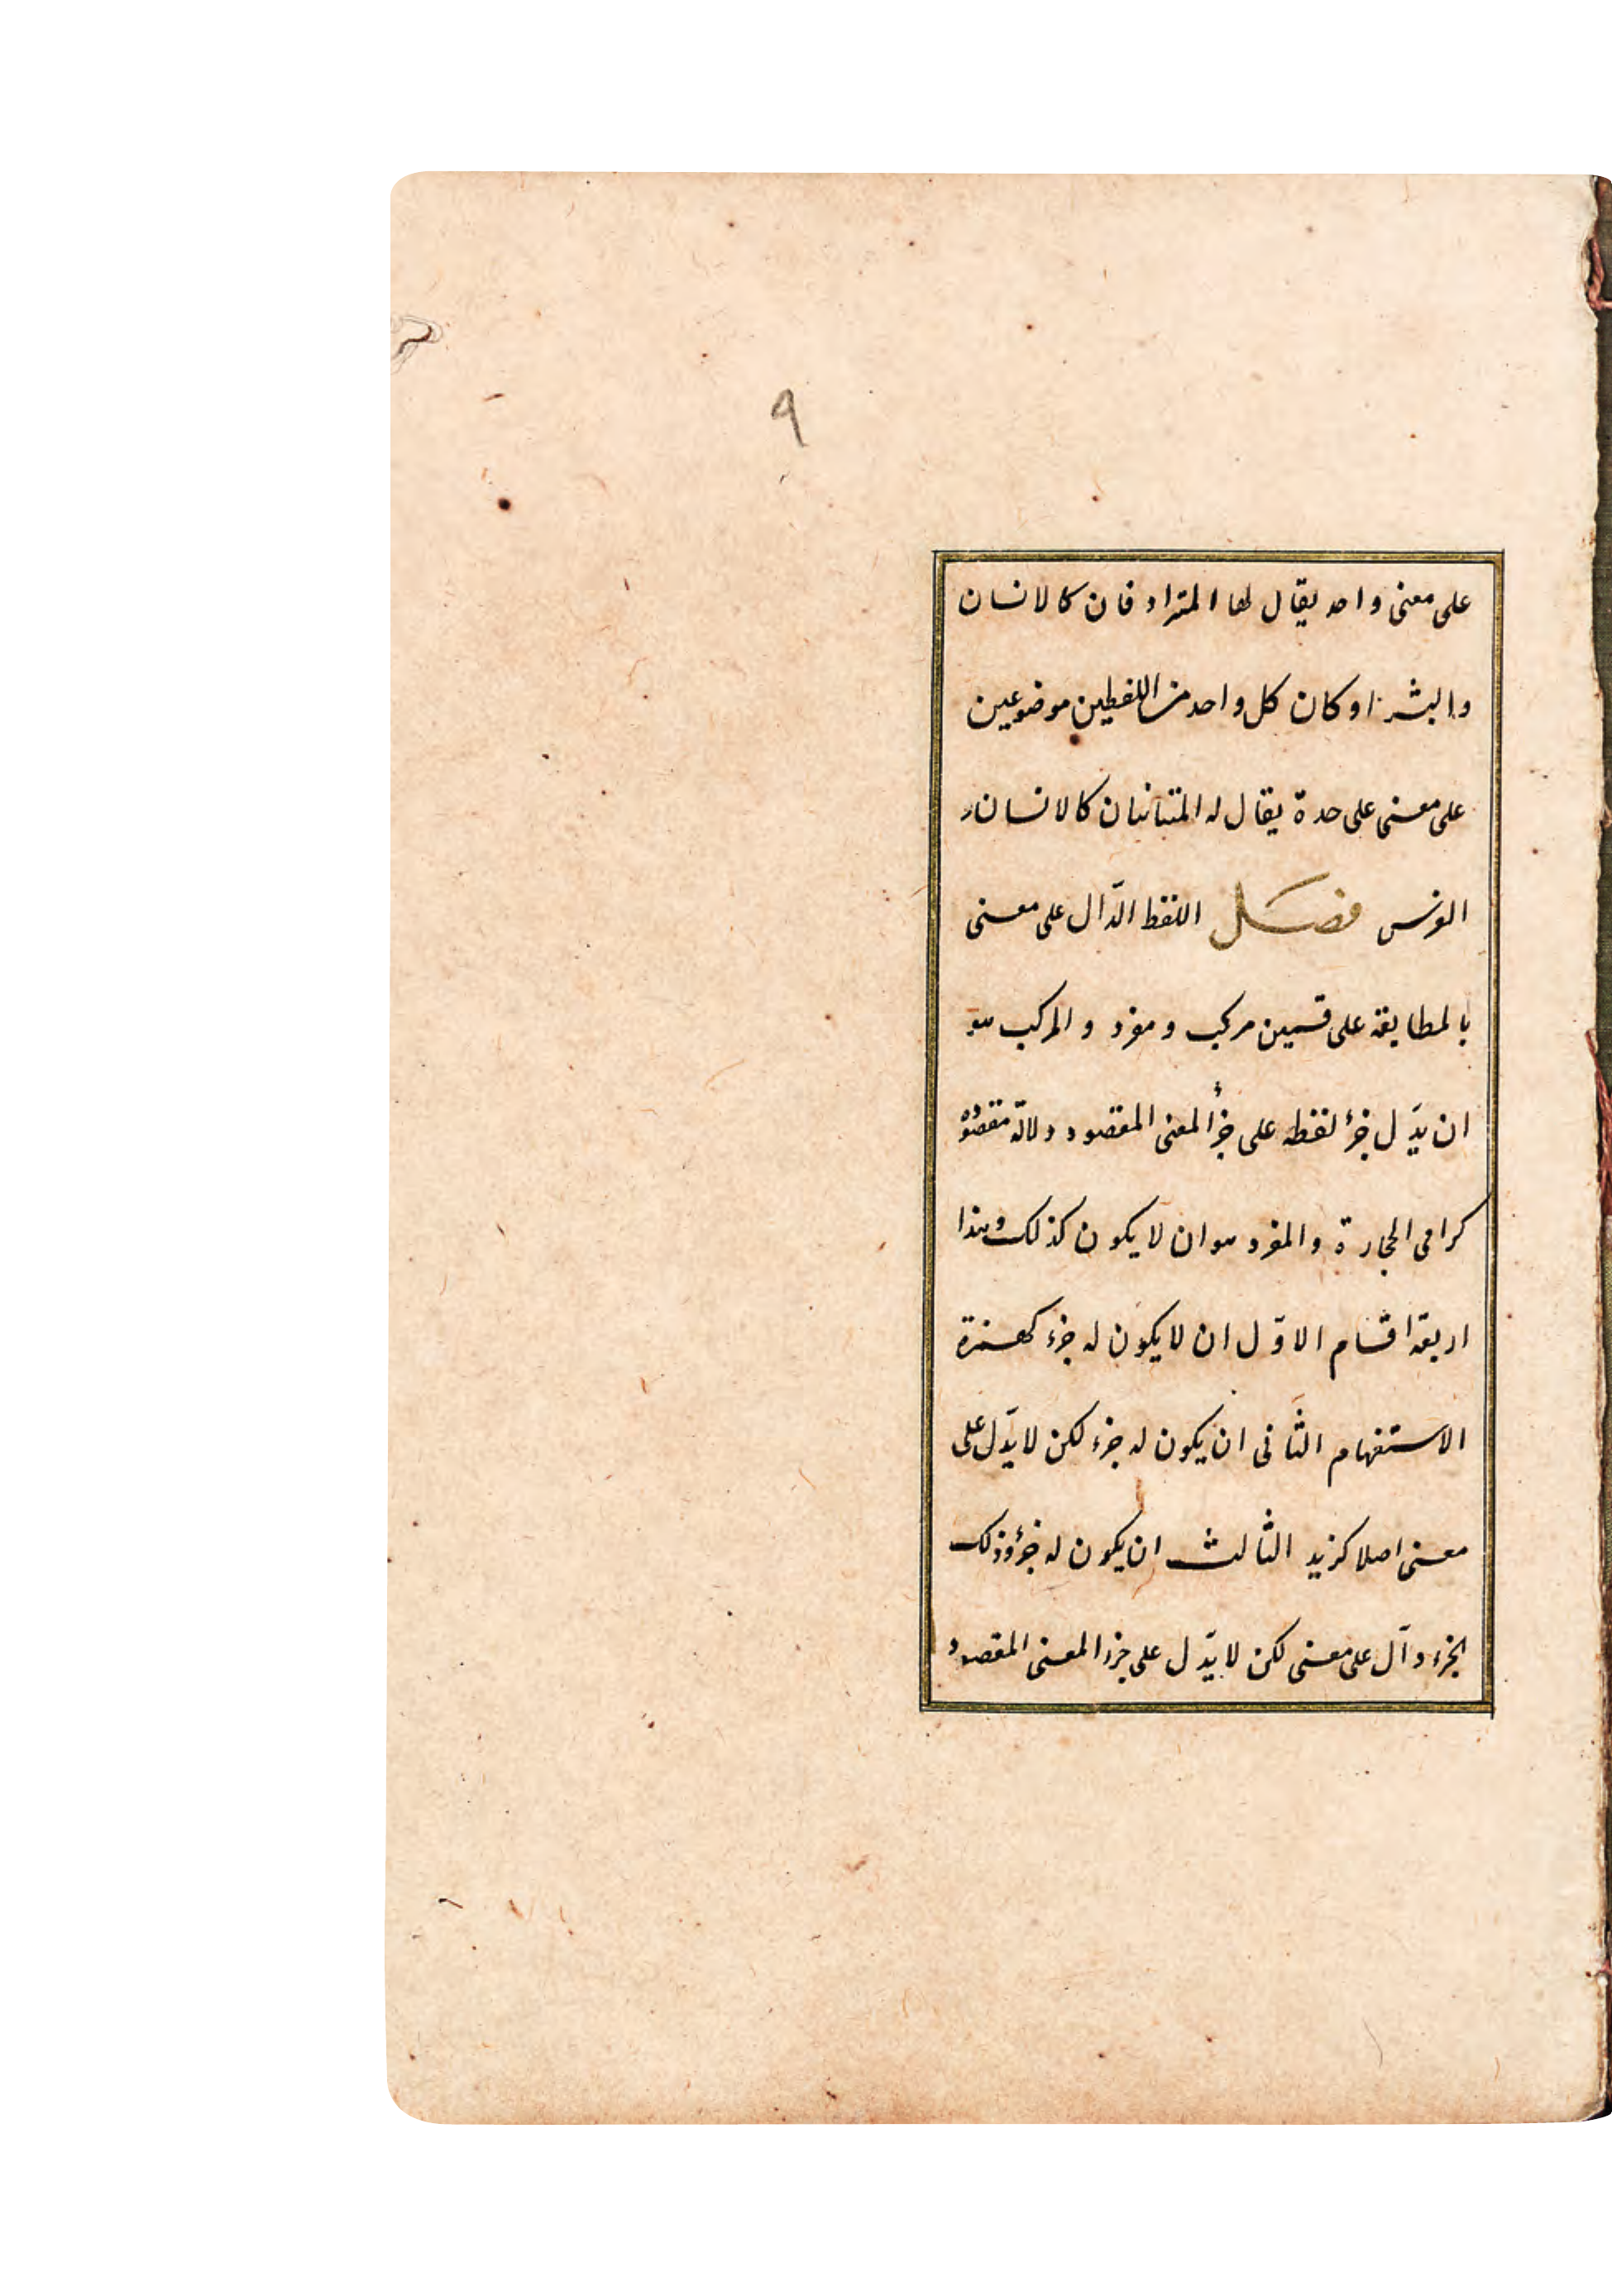 ٩
على معنى واحد يقال لها المترادفان كالانسان
والبشر او كان كل واحد من اللفظين موضوعين
على معنى على حدة يقال له المتباينان كالانسان و
الفرس فصل اللفظ الدّال على معنى
بالمطابقة على قسمين مركب و مفرد و المركب هو
ان يدّل جزء لفظه على جزء المعنى المقصود دلالة مقصودة
كرامى الحجارة و المفرد هو ان لا يكون كذلك وهذا
اربعة اقسام الاوّل ان لا يكون له جزء كهمزة
الاستفهام الثّانى ان يكون له جزء لكن لا يدّل على
معنى اصلا كزيد الثالث ان يكون له جزء وذلك
الجزء دآل على معنى لكن لا يدّل على جزء المعنى المقصود